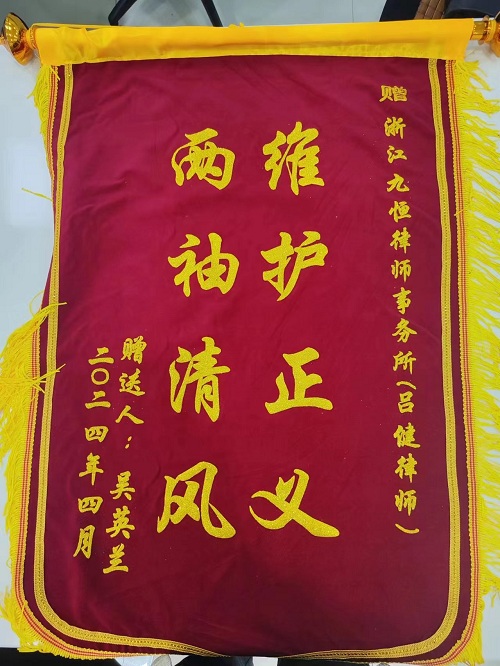 赠 浙江九恒律师事务所(吕健律师)
维护正义
两袖清风
赠送人：吴英兰
二〇二四年四月